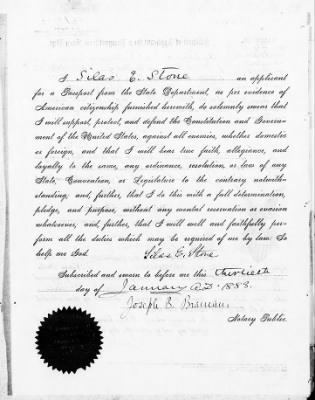 I Silas E. Stone an applicant
for a Passport from the State Department, as per evidence of
American citizenship furnished herewith, do solemnly swear that
I will support, protect, and defend the Constitution and Govern-
ment of the United States, against all enemies, whether domestic
or foreign, and that I will bear true faith, allegiance, and
loyalty to the same, any ordinance, resolution, or law of any
State, Convention, or Legislature to the contrary notwith-
standing; and, further, that I do this with a full determination,
pledge, and purpose, without any mental reservation or evasion
whatsoever, and, further, that I will well and faithfully per-
form all the duties which may be required of me by law. So
help me God. Silas E. Stone
Subscribed and sworn to before me this thirtieth
day of January A.D. 1888.
Joseph
Notary Public.